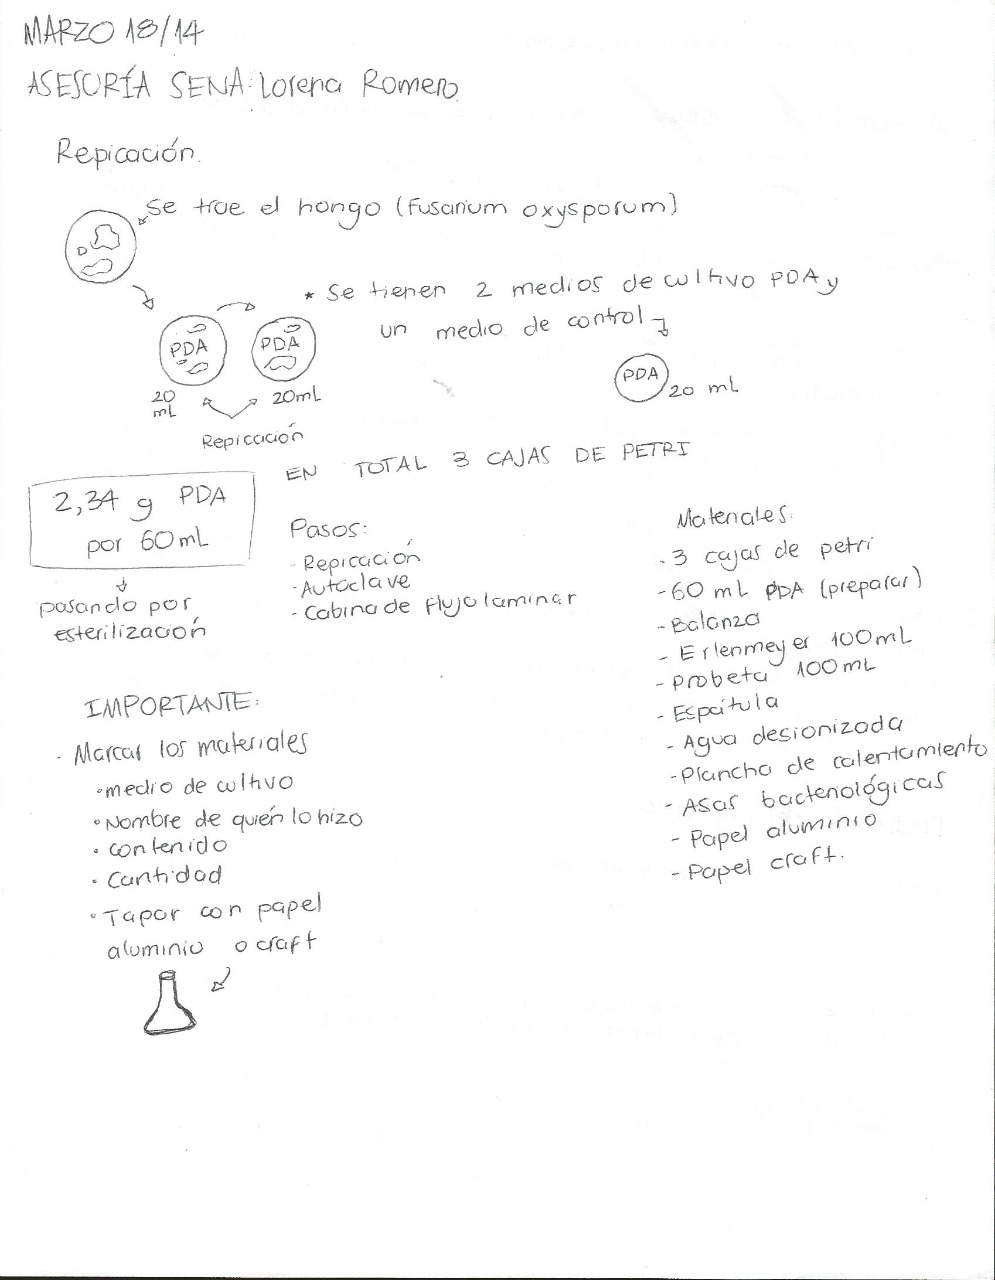 MARZO 18/14
ASESORÍA SENA: Lorena Romero
Repicación.
Se trae el hongo (Fusarium oxysporum)
* Se tienen 2 medios de cultivo PDA y
un medio de control
PDA
PDA
PDA
20 mL
20 mL
20mL
Repicación
EN TOTAL 3 CAJAS DE PETRI
2,34 g PDA
por 60mL
pasando por
esterilización
Pasos:
- Repicación
- Autoclave
- Cabina de flujo laminar
Materiales:
- 3 cajas de petri
- 60 mL PDA (preparar)
- Balanza
- Erlenmeyer 100mL
- Probeta 100mL
- Espátula
- Agua desionizada
- Plancha de calentamiento
- Asas bacteriológicas
- Papel aluminio
- Papel craft.
IMPORTANTE:
· Marcar los materiales
• medio de cultivo
• Nombre de quién lo hizo
• contenido
• Cantidad
• Tapar con papel
aluminio o craft